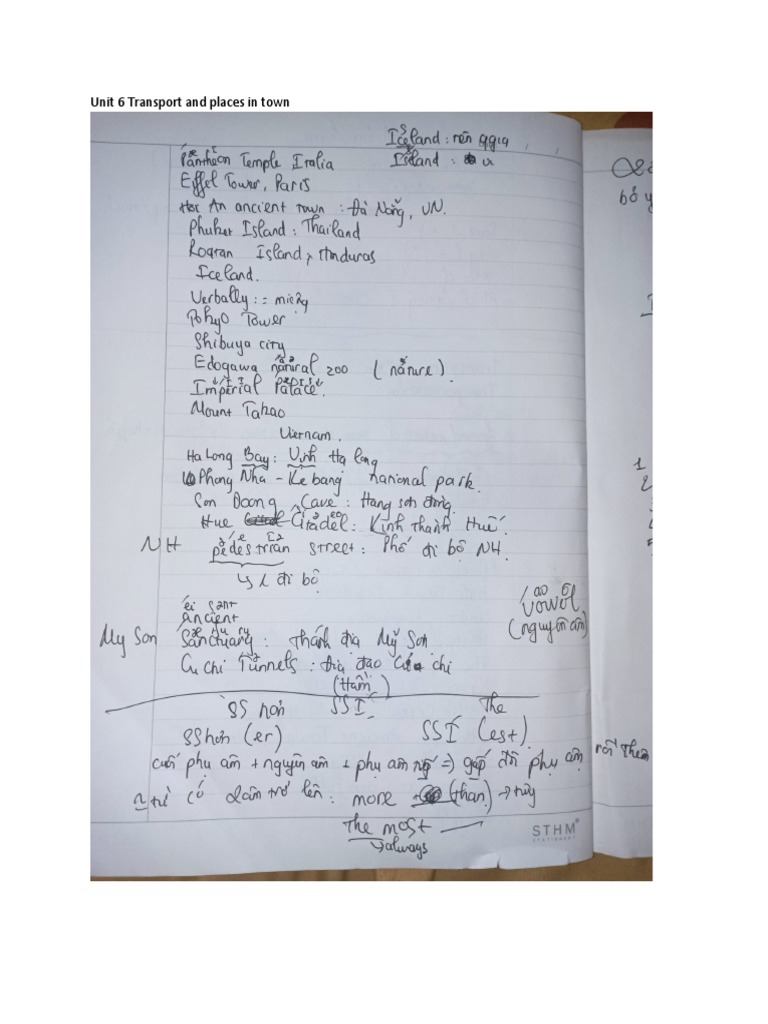 Unit 6 Transport and places in town
Iceland: tên
Island:
Pantheon Temple Italia
Eiffel Tower, Paris
Hoi An ancient town : Đà Nẵng, VN.
Phuket Island: Thailand
Roatan Island, Honduras
Iceland.
Verbally : = miệng
Tokyo Tower
Shibuya city
Edogawa natural zoo (nature).
Imperial Palace.
Mount Takao
Vietnam.
Ha Long Bay: Vịnh Hạ long
Phong Nha - Ke bang national park.
Son Doong Cave : Hang sơn đòng.
Hue Citadel: Kinh thành Huế.
NH pedestrian street: Phố đi bộ NH.
đi bộ
ei
Ancient
vowel
(nguyên âm)
My Son Sanctuary : thánh địa Mỹ Sơn
Cu chi Tunnels : địa đạo Củ chi
(Hầm)
SS hơn SSÍ The
SShơn (er) SSÍ (est).
cuối phụ âm + nguyên âm + phụ âm => gấp đôi phụ âm rồi thêm
từ có 2 âm trở lên: more (than) → tùy
The most
→always
STHM
STATIONERY
bỏ
1